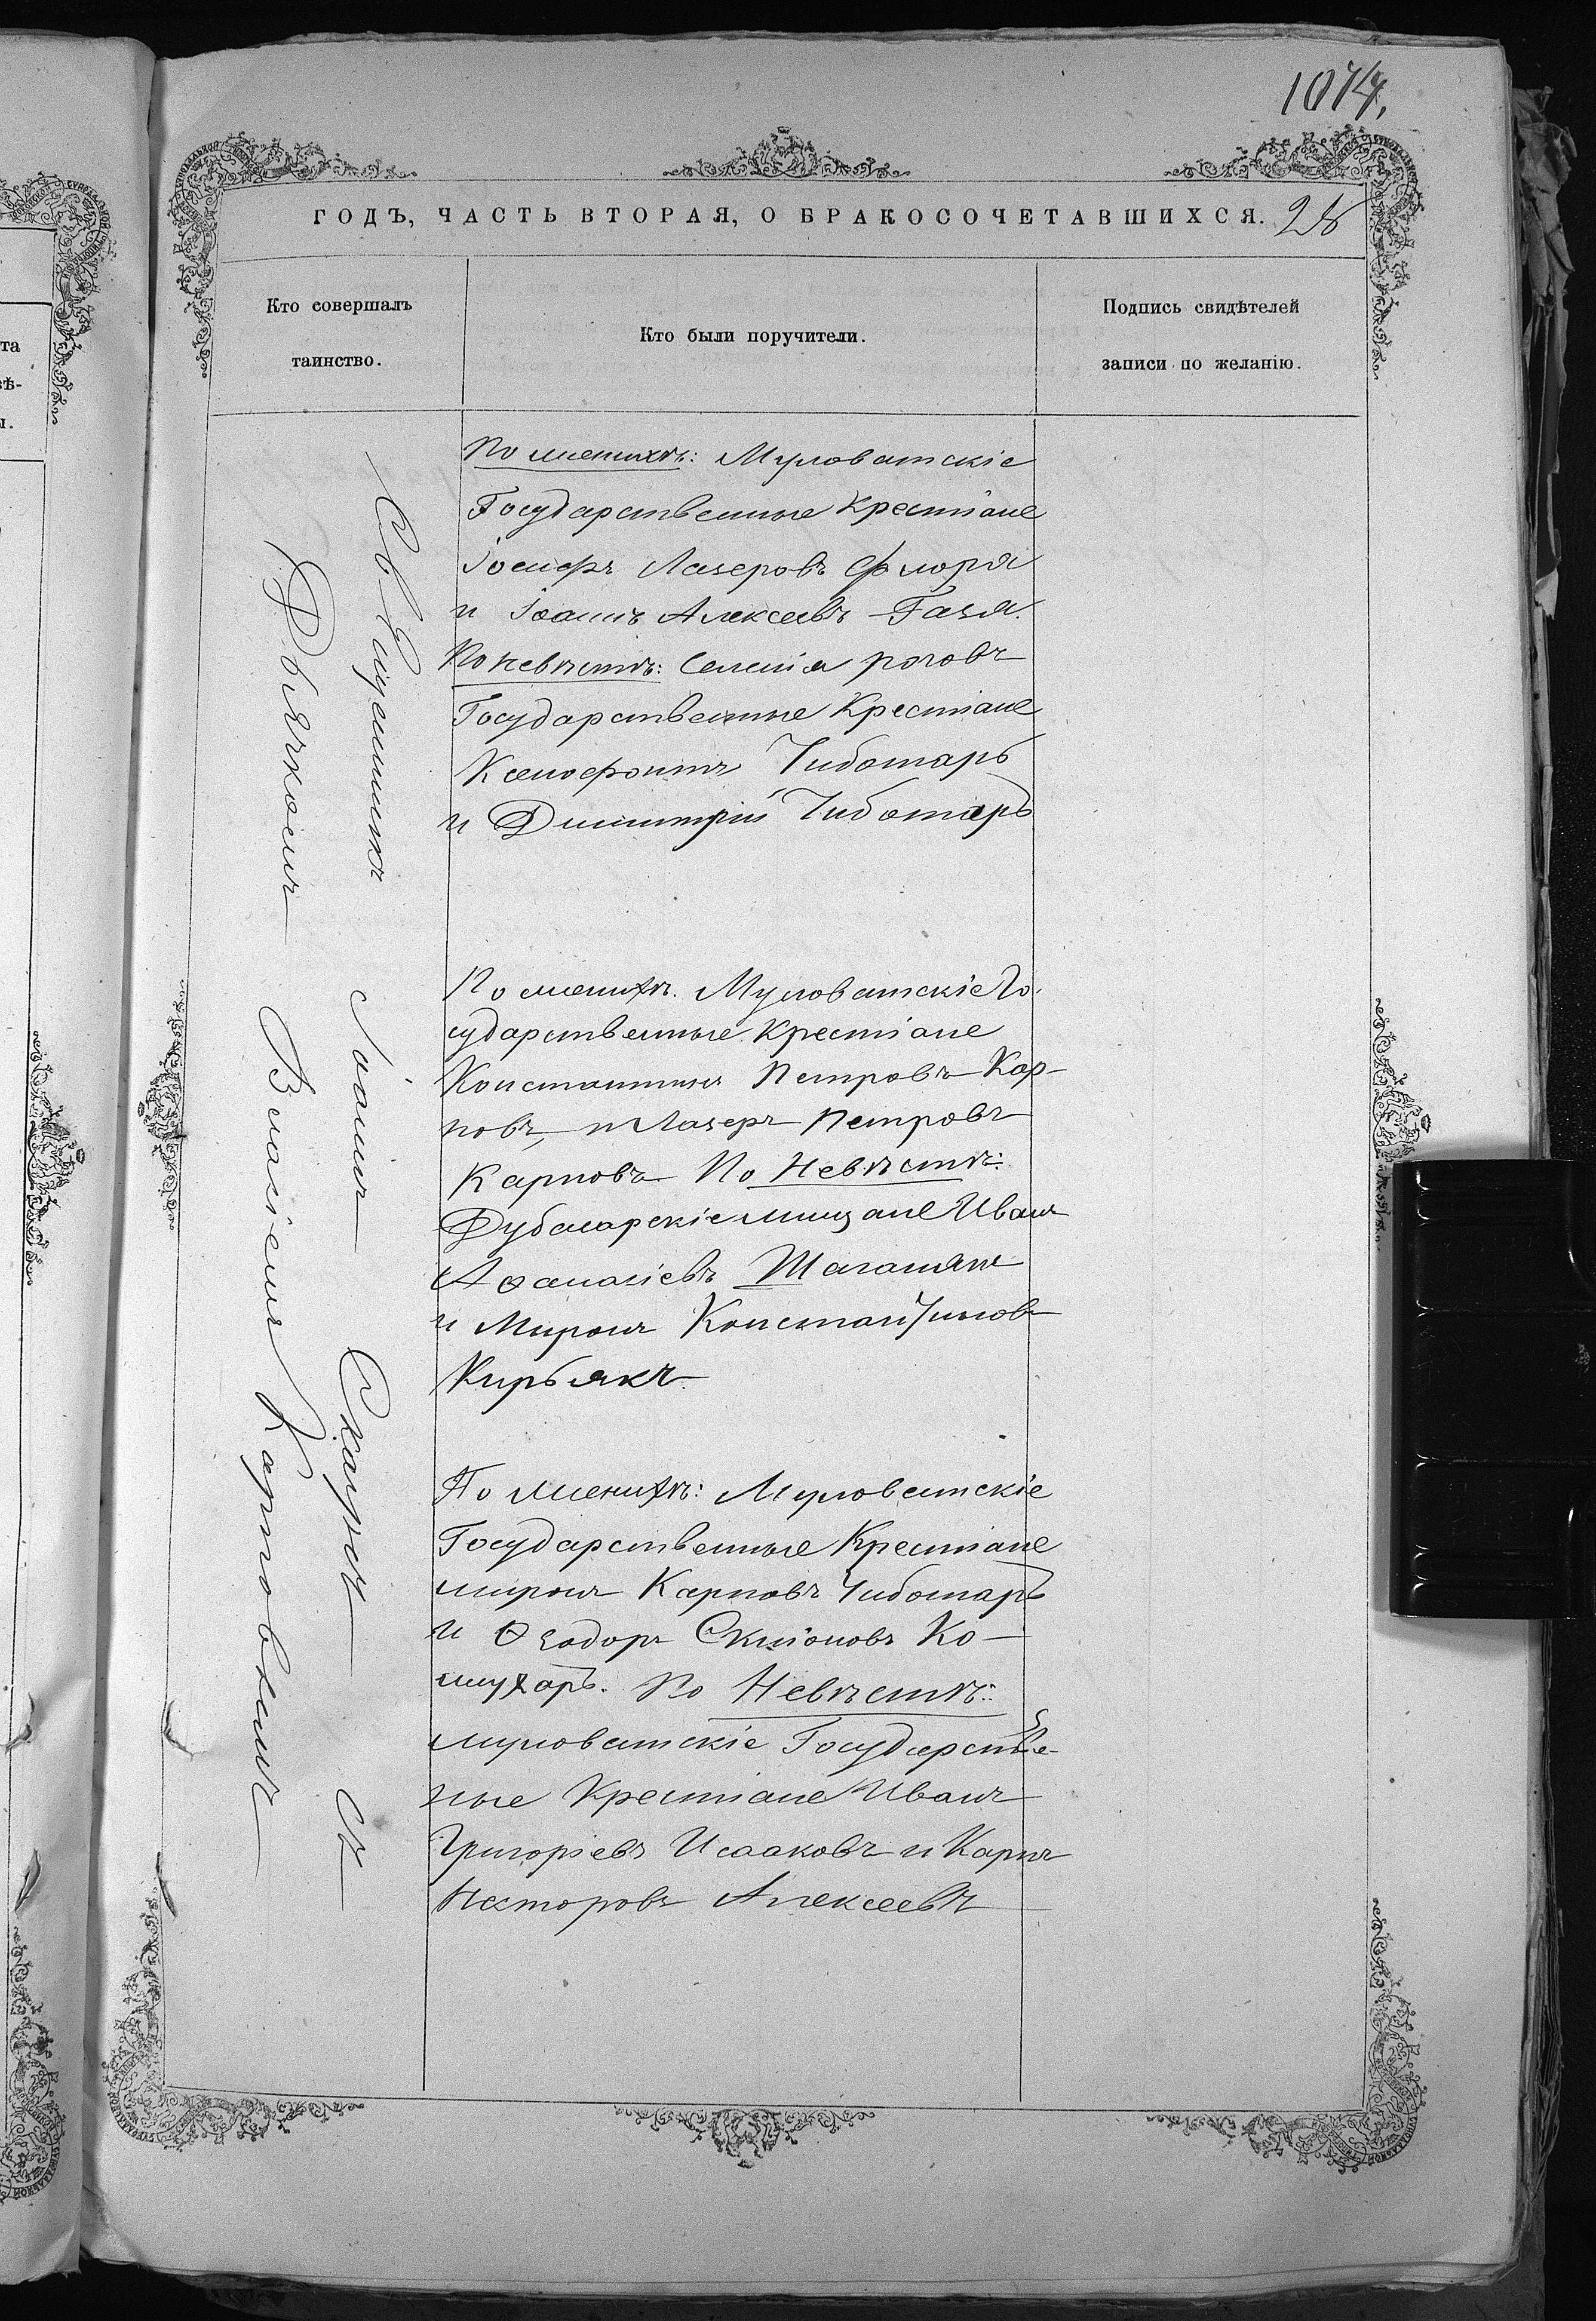 1074.
ГОДЪ, ЧАСТЬ ВТОРАЯ, О БРАКОСОЧЕТАВШИХСЯ. 28
Кто совершалъ
таинство.
Кто были поручители.
Подпись свидѣтелей
записи по желанію.
Священникъ Іоаннъ съ
Дьячкомъ Власіемъ Карповичемъ
По женихѣ: Муловатскіе
Государственные Крестiане
Іосифъ Лазеровъ Флоря
и Іоаннъ Алексѣевъ Газя.
По невѣстѣ: Селенія роговъ
Государственные Крестiане
Ксенофонтъ Чиботарь
и Димитрій Чиботарь
По женихѣ. Муловатскіе Го-
сударственные Крестiане
Константинъ Петровъ Кар-
повъ, и Лазеръ Петровъ
Карповъ По Невѣстѣ:
Дубосарскіе мищане Иванъ
Аѳанасіевъ
и Миронъ Константиновъ
Кирьякъ.
По женихѣ: Муловатскіе
Государственные Крестiане
миронъ Карповъ Чиботарь
и Ѳеодоръ Ко-
жухарь. По Невѣстѣ:
муловатскіе Государстве-
ные Крестiане Иванъ
Григоріевъ Исааковъ и Карпъ
Несторовъ Алексеевъ